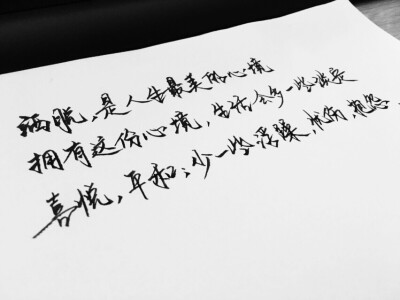 洒脱，是人生最美的心境
拥有这份心境，生活会多一些淡定
喜悦，平和；少一些浮躁，忧伤，怨